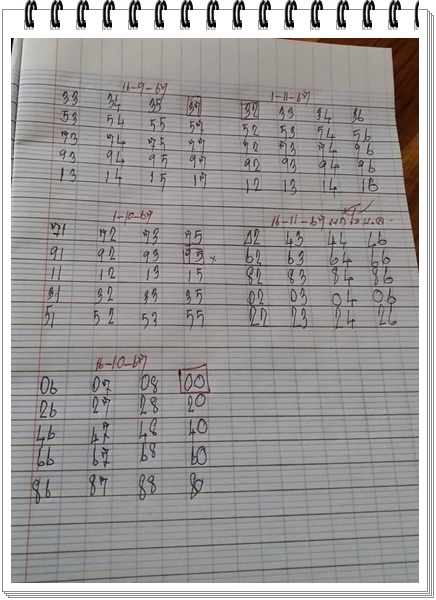 16-9-67
33 34 35 37
53 54 55 57
73 74 75 77
93 94 95 97
13 14 15 17
1-11-67
32 33 34 36
52 53 54 56
72 73 74 76
92 93 94 96
12 13 14 16
1-10-67
71 72 73 75
91 92 93 95 ×
11 12 13 15
31 32 33 35
51 52 53 55
16-11-67
42 43 44 46
62 63 64 66
82 83 84 86
02 03 04 06
22 23 24 26
16-10-67
06 07 08 00
26 27 28 20
46 47 48 40
66 67 68 60
86 87 88 80